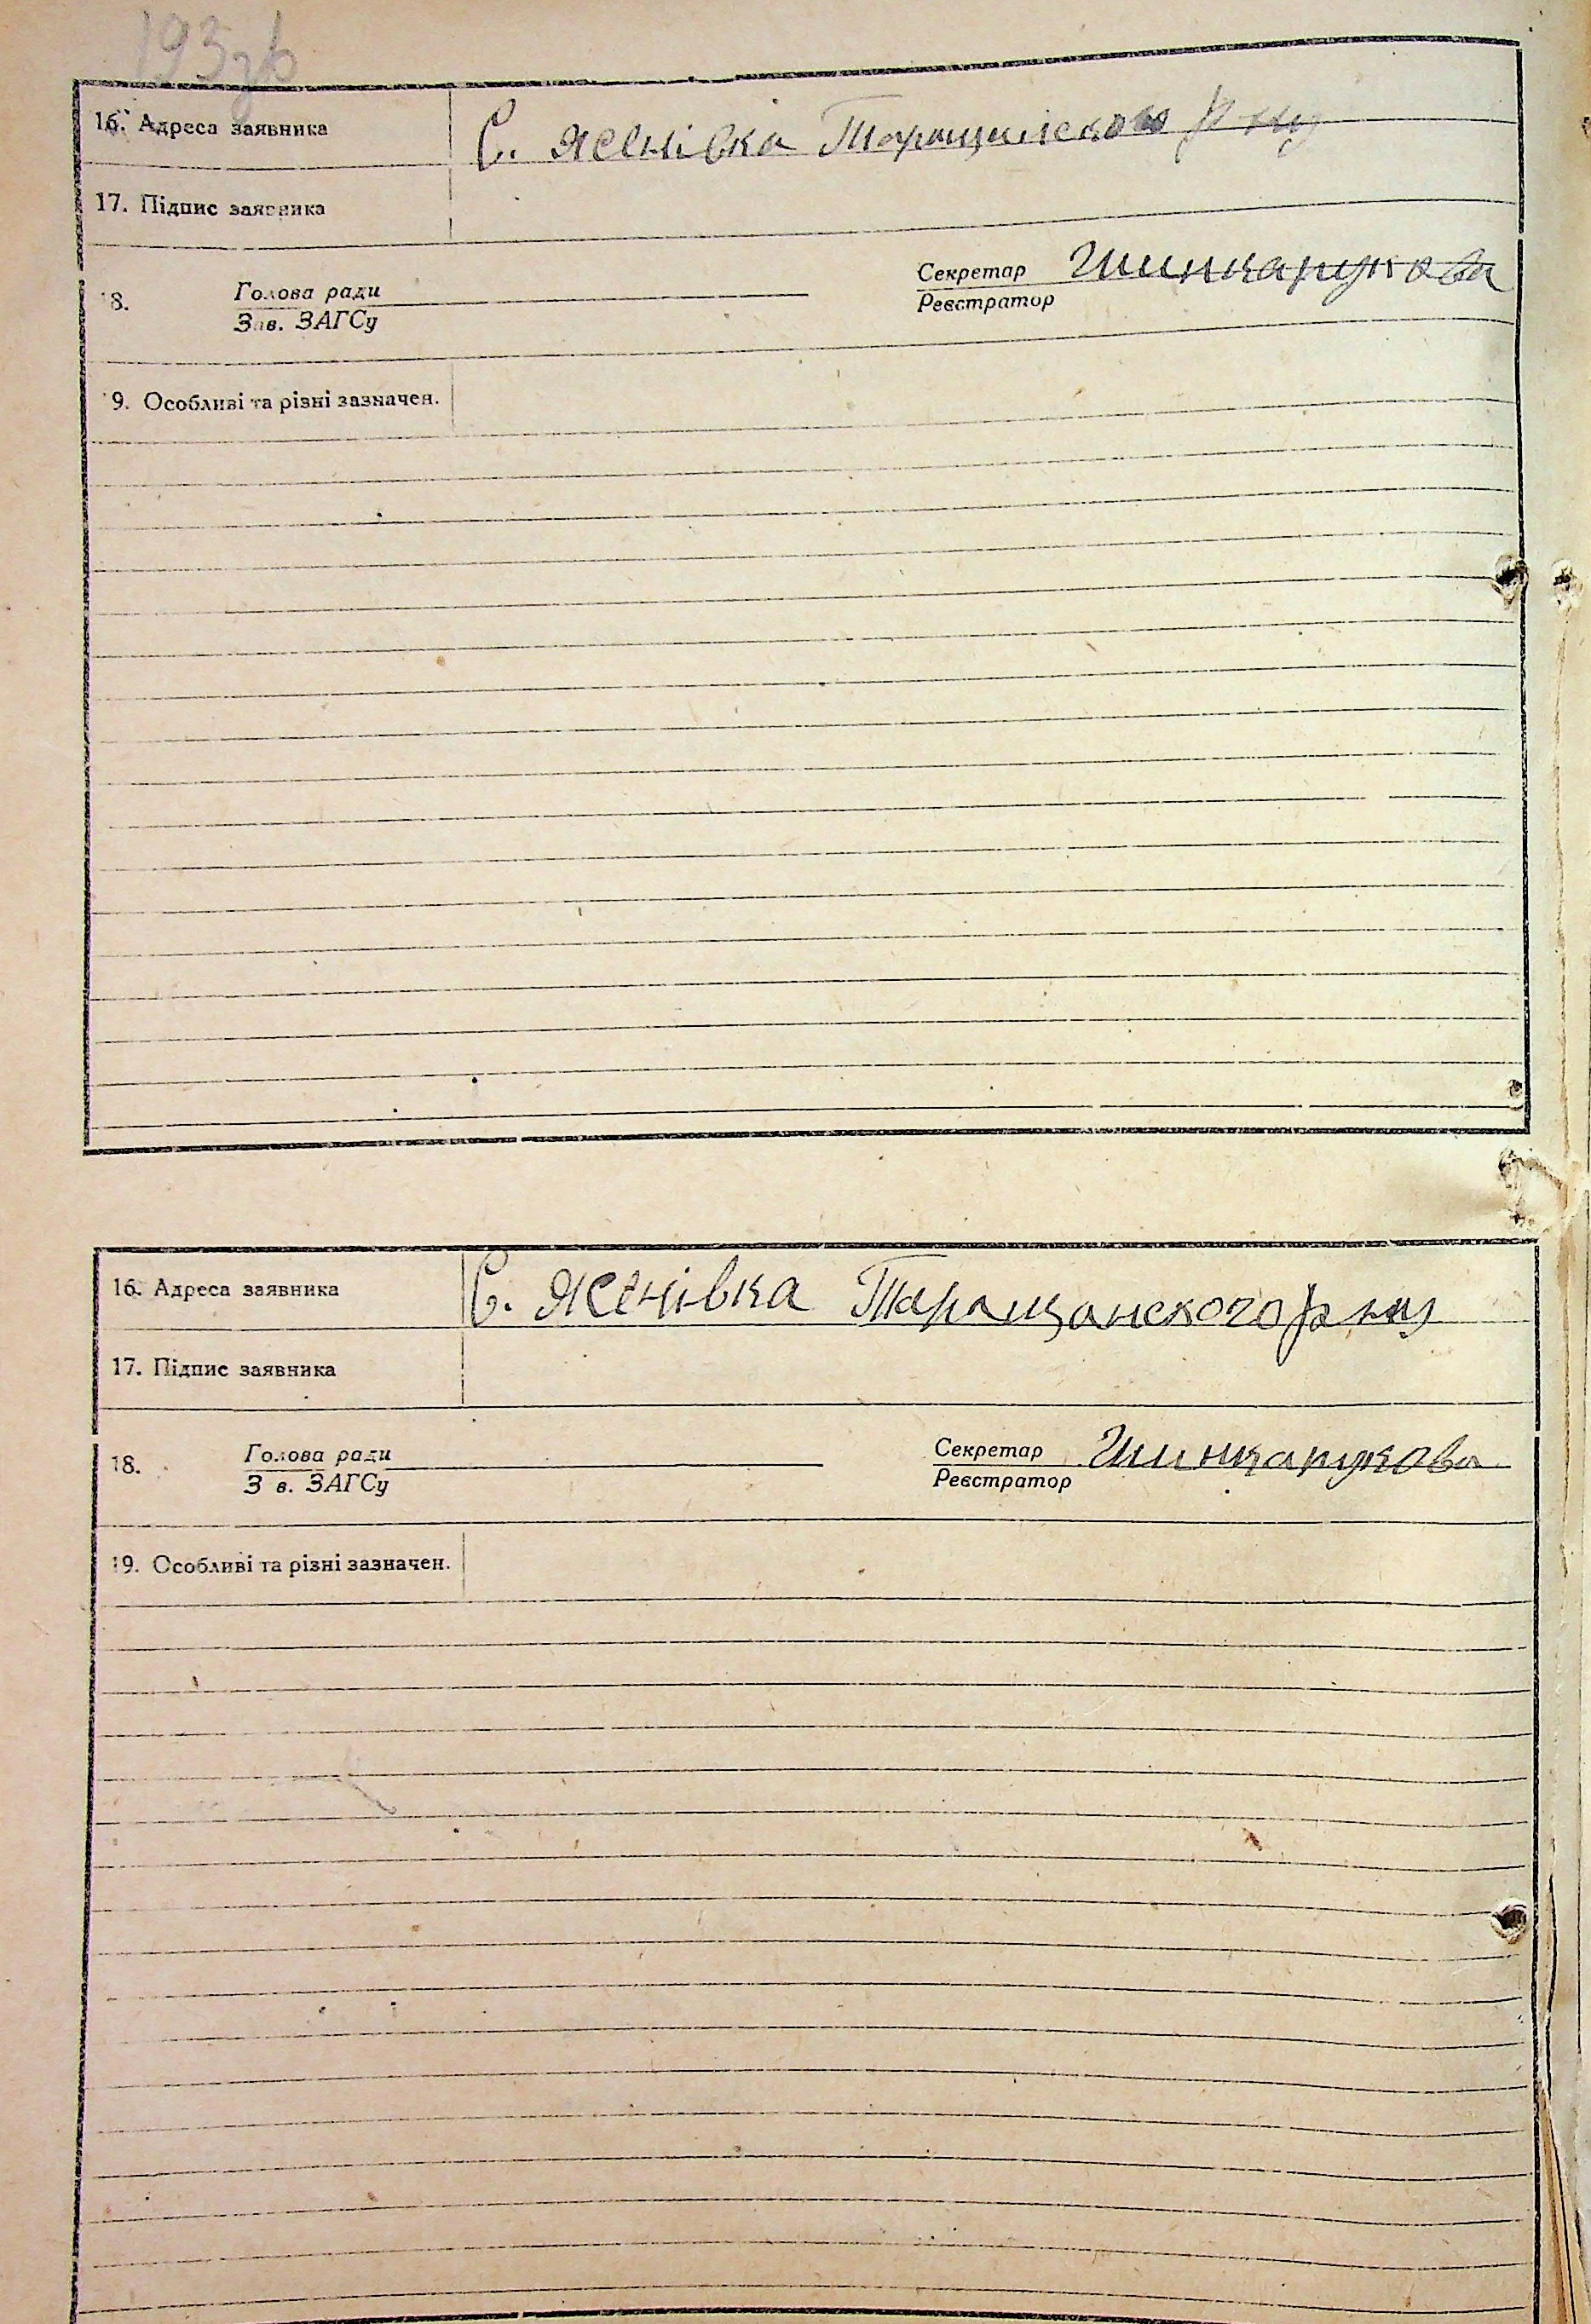 193зв
16. Адреса заявника С. Ясенівка Таращанского р-ну
17. Підпис заявника
18. Голова ради Секретар Шинкарукова
Зав. ЗАГСу Реєстратор
19. Особливі та різні зазначен.
16. Адреса заявника С. Ясенівка Таращанского р-ну
17. Підпис заявника
18. Голова ради Секретар Шинкарукова
З в. ЗАГСу Реєстратор
19. Особливі та різні зазначен.